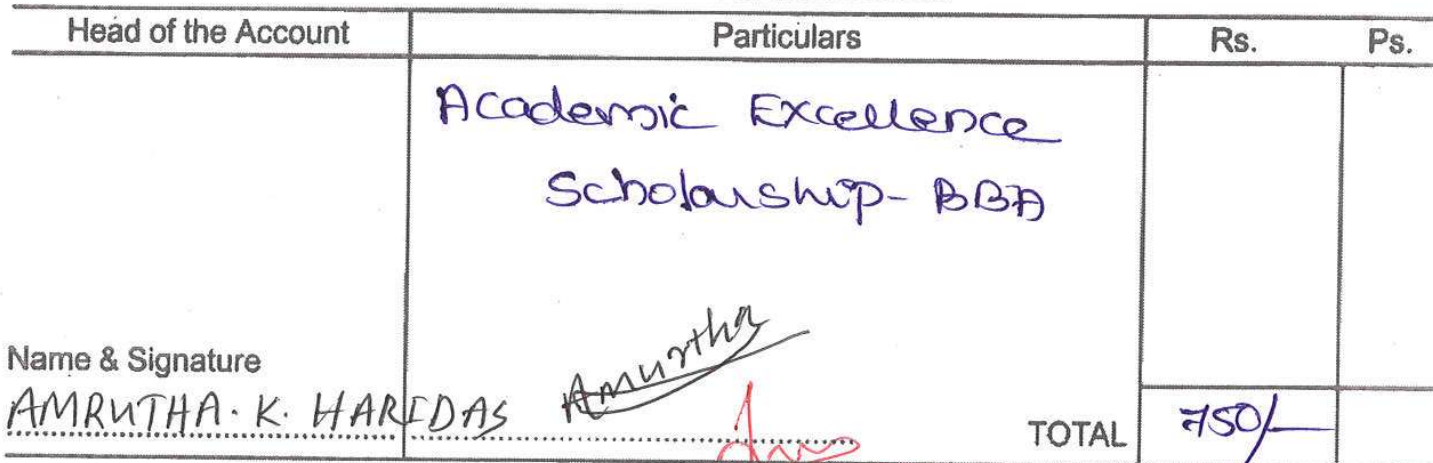 Head of the Account Particulars Rs. Ps.
Academic Excellence
Scholarship - BBA
Name & Signature
AMRUTHA. K. HARIDAS Amurtha TOTAL 750/-